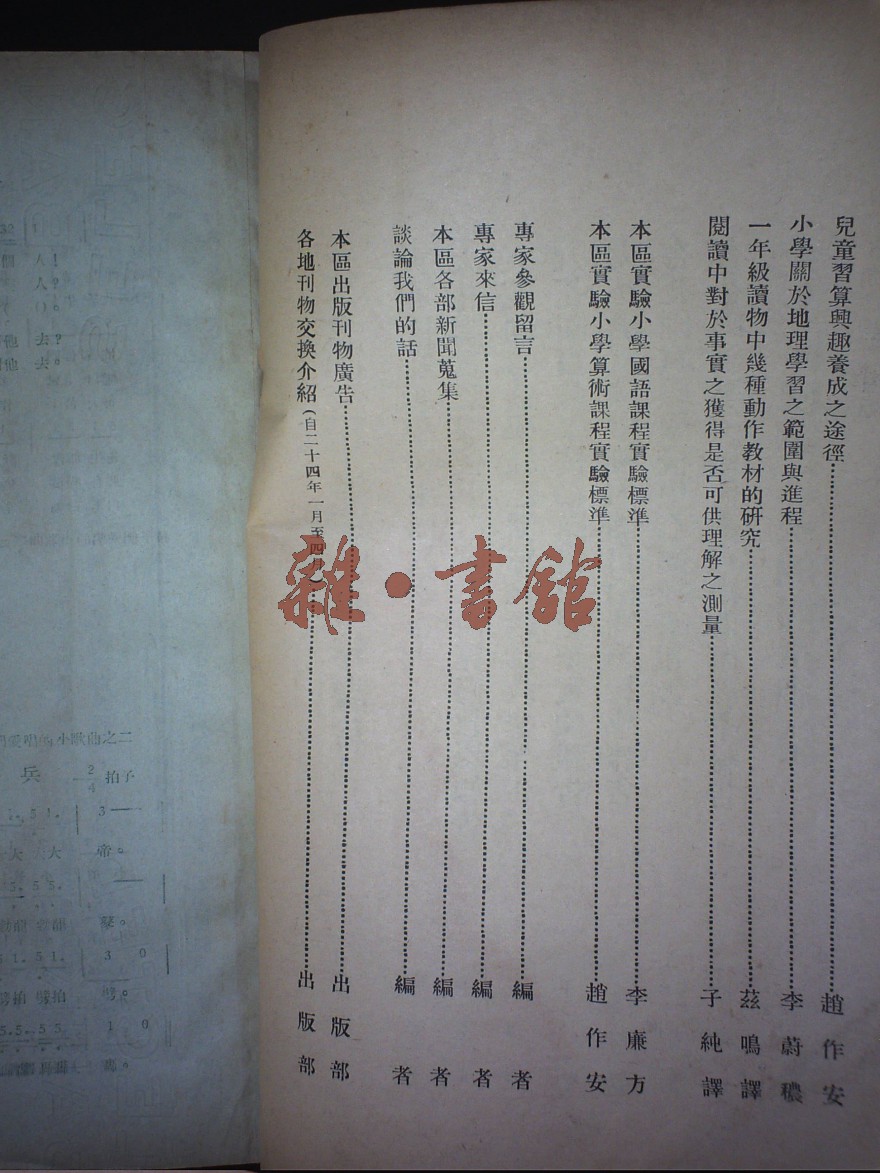 兒童習算興趣養成之途徑……趙作安
小學關於地理學習之範圍與進程……李蔚穠
一年級讀物中幾種動作教材的硏究……茲鳴譯
閱讀中對於事實之獲得是否可供理解之測量……子純譯
本區實驗小學國語課程實驗標準……李廉方
本區實驗小學算術課程實驗標準……趙作安
專家參觀留言……編者
專家來信……編者
本區各部新聞蒐集……編者
談論我們的話……編者
本區出版刊物廣告……出版部
各地刊物交換介紹(自二十四年一月至四月)……出版部
雜·書館
人!
人?
去?
去。
小歌曲之二
兵 2/4 拍子
5 1. 3——
大 大 帝。
5. 5 5. ——
5 1. 5 1. 3 0
5.5. 5 5 1 0